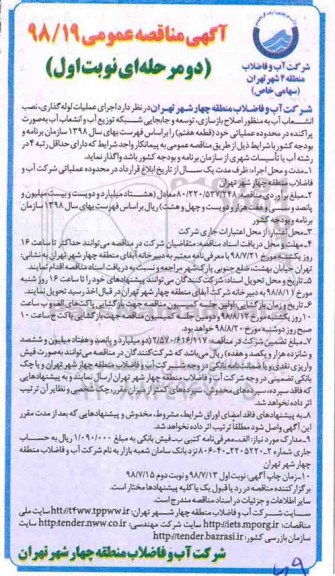 آگهی مناقصه عمومی ۹۸/۱۹
(دو مرحله ای نوبت اول)
شرکت آب و فاضلاب
منطقه ۴ شهر تهران
(سهامی خاص)
شرکت آب و فاضلاب منطقه چهار شهر تهران در نظر دارد اجرای عملیات لوله گذاری، نصب
انشعاب آب به منظور اصلاح بازسازی، توسعه و جابجایی شبکه توزیع آب و انشعاب آب به صورت
پراکنده در محدوده عملیاتی خود (قطعه هفتم) را بر اساس فهرست بهای سال ۱۳۹۸ سازمان برنامه و
بودجه کشور با شرایط ذیل از طریق مناقصه عمومی به پیمانکار واجد شرایط که دارای حداقل رتبه ۴ در
رشته آب با تأسیسات شهری از سازمان برنامه و بودجه کشور باشد واگذار نماید.
۱-مدت و محل اجراء: ظرف مدت یک سال از تاریخ ابلاغ قرارداد در محدوده عملیاتی شرکت آب و
فاضلاب منطقه چهار شهر تهران
۲-مبلغ برآوردی مناقصه: ۸۰/۲۲۰/۵۳۷/۲۴۸ معادل (هشتاد میلیارد و دویست و بیست میلیون و
پانصد و سی و هفت هزار و دویست و چهل و هشت) ریال بر اساس فهرست بهای سال ۱۳۹۸ سازمان
برنامه و بودجه کشور
۳-محل اعتبار: از محل اعتبارات جاری شرکت
۴-مهلت و محل دریافت اسناد مناقصه: متقاضیان شرکت در مناقصه می توانند حداکثر تا ساعت ۱۶
روز یکشنبه مورخ ۹۸/۷/۲۱ با معرفی نامه معتبر به دبیرخانه آبفای منطقه چهار شهر تهران به نشانی:
تهران خیابان بهشت، ضلع جنوبی پارک شهر مراجعه و نسبت به دریافت اسناد مناقصه اقدام نمایند.
۵-تاریخ و محل تحویل اسناد: شرکت کنندگان می توانند پیشنهادهای خود را تا ساعت ۱۶ روز شنبه
مورخ ۹۸/۸/۱۱ به دبیرخانه شرکت آبفای منطقه چهار شهر تهران در قبال اخذ رسید تحویل نمایند.
۶-تاریخ و زمان بازگشایی: اولین جلسه کمیسیون مناقصه جهت بازگشایی پاکت های الف و ب ساعت
۱۰ روز یکشنبه مورخ ۹۸/۸/۱۲ و دومین جلسه کمیسیون مناقصه جهت بازگشایی پاکت ج ساعت ۱۰
صبح روز دوشنبه مورخ ۹۸/۸/۲۰ خواهد بود.
۷-مبلغ تضمین شرکت در مناقصه: ۲/۵۷۰/۶۱۶/۱۱۷ (دو میلیارد و پانصد و هفتاد میلیون و ششصد
و شانزده هزار و یکصد و هفده) ریال می باشد که شرکت کنندگان در مناقصه می توانند به صورت فیش
واریزی نقدی و یا ضمانت نامه بانکی در وجه شرکت آب و فاضلاب منطقه چهار شهر تهران و یا چک
بانکی تضمینی در وجه شرکت آب و فاضلاب منطقه چهار شهر تهران ارسال نمایند و به پیشنهادهایی
که فاقد سپرده، سپرده های مخدوش، سپرده های کمتر از میزان مقرر، چک شخصی و نظایر آن ترتیب
اثر داده نخواهد شد.
۸-به پیشنهادهای فاقد امضای اوراق شرایط، مشروط، مخدوش و پیشنهادهایی که بعد از مدت مقرر
این آگهی واصل شود مطلقاً ترتیب اثر داده نخواهد شد.
۹-مدارک مورد نیاز: الف-معرفی نامه کتبی ب-فیش بانکی به مبلغ ۱/۰۹۰/۰۰۰ ریال به حساب
جاری شماره نزد بانک سامان شعبه بازار به نام شرکت آب و فاضلاب منطقه
چهار شهر تهران
۱۰-زمان چاپ آگهی: نوبت اول ۹۸/۷/۱۳ و نوبت دوم ۹۸/۷/۱۵
برگزار کننده مناقصه در رد یا قبول یک یا کلیه پیشنهادها مختار است.
سایر اطلاعات و جزئیات در اسناد مناقصه مندرج است.
وب سایت شرکت آب و فاضلاب منطقه چهار شهر تهران: http://t4ww.tppww.ir سایت ملی
مناقصات: http://iets.mporg.ir سایت شرکت مهندسی: http:tender.nww.co.ir سایت
سازمان بازرسی کشور: http://tender.bazrasi.ir
شرکت آب و فاضلاب منطقه چهار شهر تهران